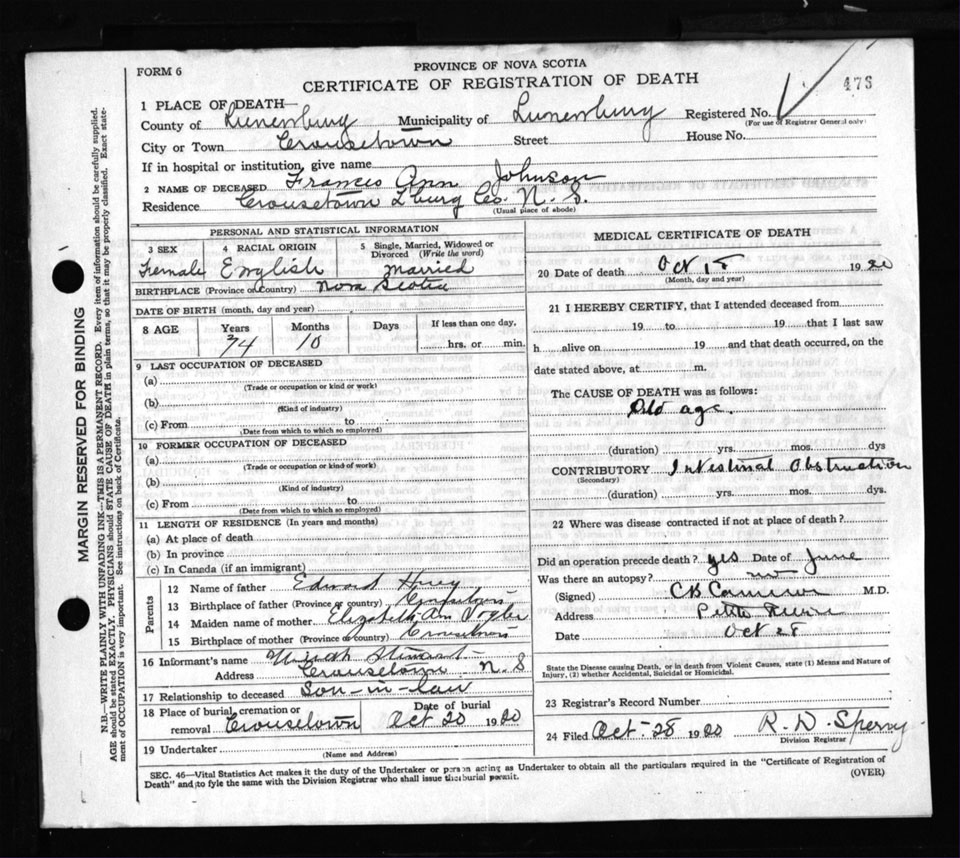 PROVINCE OF NOVA SCOTIA
FORM 6
CERTIFICATE OF REGISTRATION OF DEATH
473
1 PLACE OF DEATH—
County of Lunenburg Municipality of Lunenburg Registered No.
(For use of Registrar General only)
City or Town Crousetown Street House No.
If in hospital or institution, give name
2 NAME OF DECEASED Frances Ann Johnson
Residence Crousetown L'burg Co. N. S.
(Usual place of abode)
PERSONAL AND STATISTICAL INFORMATION
3 SEX 4 RACIAL ORIGIN 5 Single, Married, Widowed or Divorced (Write the word)
Female English Married
BIRTHPLACE (Province or Country) Nova Scotia
DATE OF BIRTH (month, day and year)
8 AGE Years Months Days If less than one day,
74 10 hrs. or min.
9 LAST OCCUPATION OF DECEASED
(a)
(Trade or occupation or kind or work)
(b)
(Kind of industry)
(c) From to
(Date from which to which so employed)
10 FORMER OCCUPATION OF DECEASED
(a)
(Trade or occupation or kind of work)
(b)
(Kind of industry)
(c) From to
(Date from which to which so employed)
11 LENGTH OF RESIDENCE (In years and months)
(a) At place of death
(b) In province
(c) In Canada (if an immigrant)
Parents
12 Name of father Edward
13 Birthplace of father (Province or country) Crousetown
14 Maiden name of mother Elizabeth Ann Vogler
15 Birthplace of mother (Province or country) Crousetown
16 Informant's name Uriah Stewart
Address Crousetown N. S
17 Relationship to deceased Son-in-law
18 Place of burial, cremation or removal Crousetown Date of burial Oct 20 1920
19 Undertaker
(Name and Address)
MEDICAL CERTIFICATE OF DEATH
20 Date of death Oct 18 1920
(Month, day and year)
21 I HEREBY CERTIFY, that I attended deceased from
19 to 19 that I last saw
h alive on 19 and that death occurred, on the
date stated above, at m.
The CAUSE OF DEATH was as follows:
Old age.
(duration) yrs. mos. dys
CONTRIBUTORY Intestinal Obstruction
(Secondary)
(duration) yrs. mos. dys.
22 Where was disease contracted if not at place of death?
Did an operation precede death? yes Date of June
Was there an autopsy? no
(Signed) CB Cameron M.D.
Address Petite Riviere
Date Oct 28
State the Disease causing Death, or in death from Violent Causes, state (1) Means and Nature of
Injury, (2) whether Accidental, Suicidal or Homicidal.
23 Registrar's Record Number
24 Filed Oct-28 1920 R. D. Sperry
Division Registrar
SEC. 46—Vital Statistics Act makes it the duty of the Undertaker or person acting as Undertaker to obtain all the particulars required in the "Certificate of Registration of
Death" and to fyle the same with the Division Registrar who shall issue the burial permit.
(OVER)
MARGIN RESERVED FOR BINDING
N.B.—WRITE PLAINLY WITH UNFADING INK—THIS IS A PERMANENT RECORD. Every item of information should be carefully supplied.
AGE should be stated EXACTLY. PHYSICIANS should STATE CAUSE OF DEATH in plain terms, so that it may be properly classified. Exact state-
ment of OCCUPATION is very important. See instructions on back of Certificate.